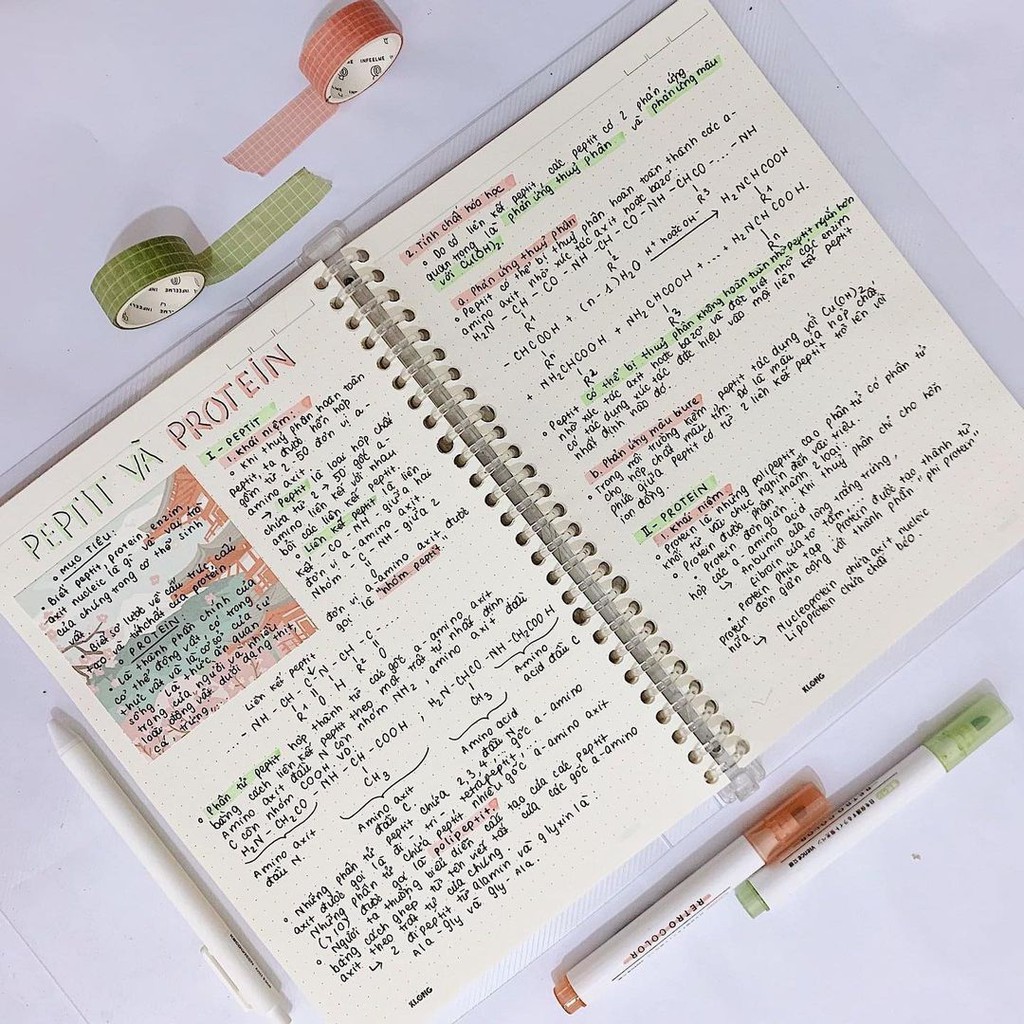 PEPTIT VÀ PROTEIN
• MỤC TIÊU:
Biết peptit, protein, enzim
axit nucleic là gì và vai trò
của chúng trong cơ thể sinh
vật.
Biết sơ lược về cấu trúc
PROTEIN:
là thành phần chính của
cơ thể động vật có trong
thực vật và là cơ sở của
sự sống
là thức ăn quan
trọng của người và nhiều
loài động vật dưới dạng thịt,
cá, trứng...
I - PEPTIT
1. Khái niệm:
Khi thuỷ phân hoàn toàn
peptit, ta được hỗn hợp
gồm từ 2 - 50 đơn vị α
amino axit.
→ Peptit là loại hợp chất
chứa từ 2 → 50 gốc α-
amino liên kết với nhau
bởi các liên kết peptit.
• Liên kết peptit là liên
kết - CO - NH - giữa hai
đơn vị α - amino axit.
Nhóm - C - NH - giữa 2
O
đơn vị α amino axit được
gọi là "nhóm peptit".
Liên kết peptit
.... - NH - CH - C - N - CH - C - ....
R¹ O H R² O
Phân tử peptit hợp thành từ các gốc α-amino axit
bằng cách liên kết peptit theo một trật tự nhất định
amino axit đầu N còn nhóm NH₂, amino axit đầu
C còn nhóm COOH. VD:
H₂N - CH₂CO - NH - CH - COOH ; H₂N - CHCO - NH - CH₂COOH
CH₃
CH₃
Amino axit
đầu N.
Amino axit
đầu C.
Amino acid
đầu N.
Amino
acid đầu C
• Những phân tử peptit chứa 2, 3, 4 gốc α-amino
axit được gọi là đi - tri - tetrapeptit.
Những phân tử chứa nhiều gốc α-amino axit
(>10) được gọi là polipeptit.
• Người ta thường biểu diễn cấu tạo của các peptit
bằng cách ghép từ tên viết tắt của các gốc α-amino
axit theo trật tự của chúng.
↳ 2 đipeptit từ alamin và glyxin là:
Ala - gly và gly - Ala.
KLONG
2. Tính chất hóa học
• Do có liên kết peptit, các peptit có 2 phản ứng
quan trọng là phản ứng thuỷ phân và phản ứng màu
với Cu(OH)₂
a. Phản ứng thuỷ phân
• Peptit có thể bị thuỷ phân hoàn toàn thành các α-
amino axit nhờ xúc tác axit hoặc bazơ:
H₂N - CH - CO - NH - CH - CO - NH - CHCO - .... - NH
R¹ R² R³
- CHCOOH + (n - 1)H₂O H⁺ hoặc OH⁻ → H₂NCHCOOH
Rⁿ R¹
+ NH₂CHCOOH + NH₂CHCOOH + .... + H₂NCHCOOH.
R² R³ Rn
• Peptit có thể bị thuỷ phân không hoàn toàn nhờ peptit ngắn hơn
nhờ xúc tác axit hoặc bazơ và đặc biệt nhờ các enzim
có tác dụng xúc tác đặc hiệu vào một liên kết peptit
nhất định nào đó.
b. Phản ứng màu biure
• Trong môi trường kiềm, peptit tác dụng với Cu(OH)₂
cho hợp chất màu tím. Đó là màu của hợp chất
phức giữa peptit có từ 2 liên kết peptit trở lên với
ion đồng.
II - PROTEIN
1. Khái niệm
• Protein là những polipeptit cao phân tử có phân tử
khối từ vài chục nghìn đến vài triệu.
• Protein được phân thành 2 loại:
+ Protein đơn giản: khi thuỷ phân chỉ cho hỗn
hợp các α-amino acid
↳ Anbumin của lòng trắng trứng,
fibroin của tơ tằm,...
+ Protein phức tạp: được tạo thành từ
Protein đơn giản cộng với thành phần "phi protein"
nữa
↳ Nucleoprotein chứa axit nucleic
Lipoprotein chứa chất béo.
KLONG
INFEELME
INFEELME
RETRO COLOR